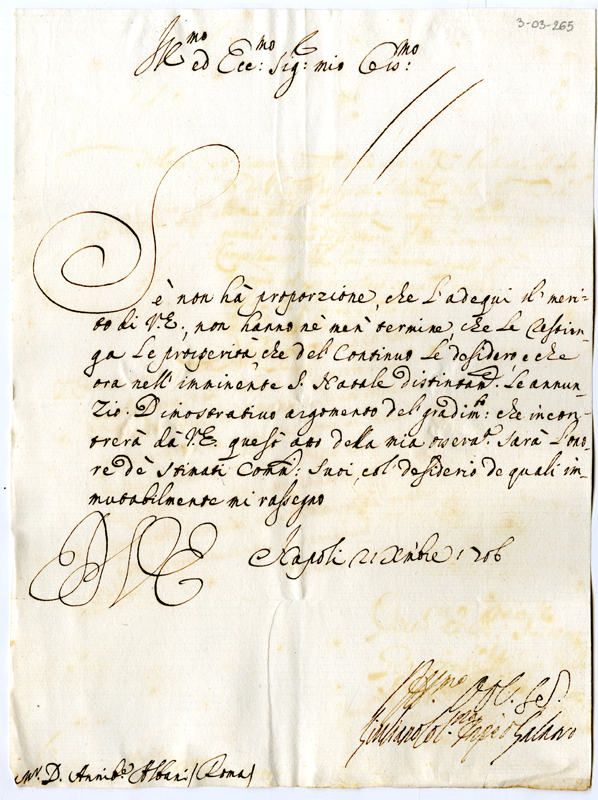 3-03-265
Ill.mo ed Ecc:mo Sig:r mio Oss:mo
Sè non hà proporzione, che l'adequi il meri-
to di V.E., non hanno nè men termine, chè le restrin-
ga le prosperità, che del Continuo le desidero, e che
ora nell'imminente S. Natale distintam. le annun-
zio. Dimostrativo argomento del gradim: che incon-
trerà dà V.E. questo atto della mia osservat. sarà l'ono-
re dè stimati Com: suoi, col desiderio de quali im-
mutabilmente mi rassegno
D V E Napoli 21 Xmbre 1706
Giuliano
Mr. D. Annibe. Albani (Roma)